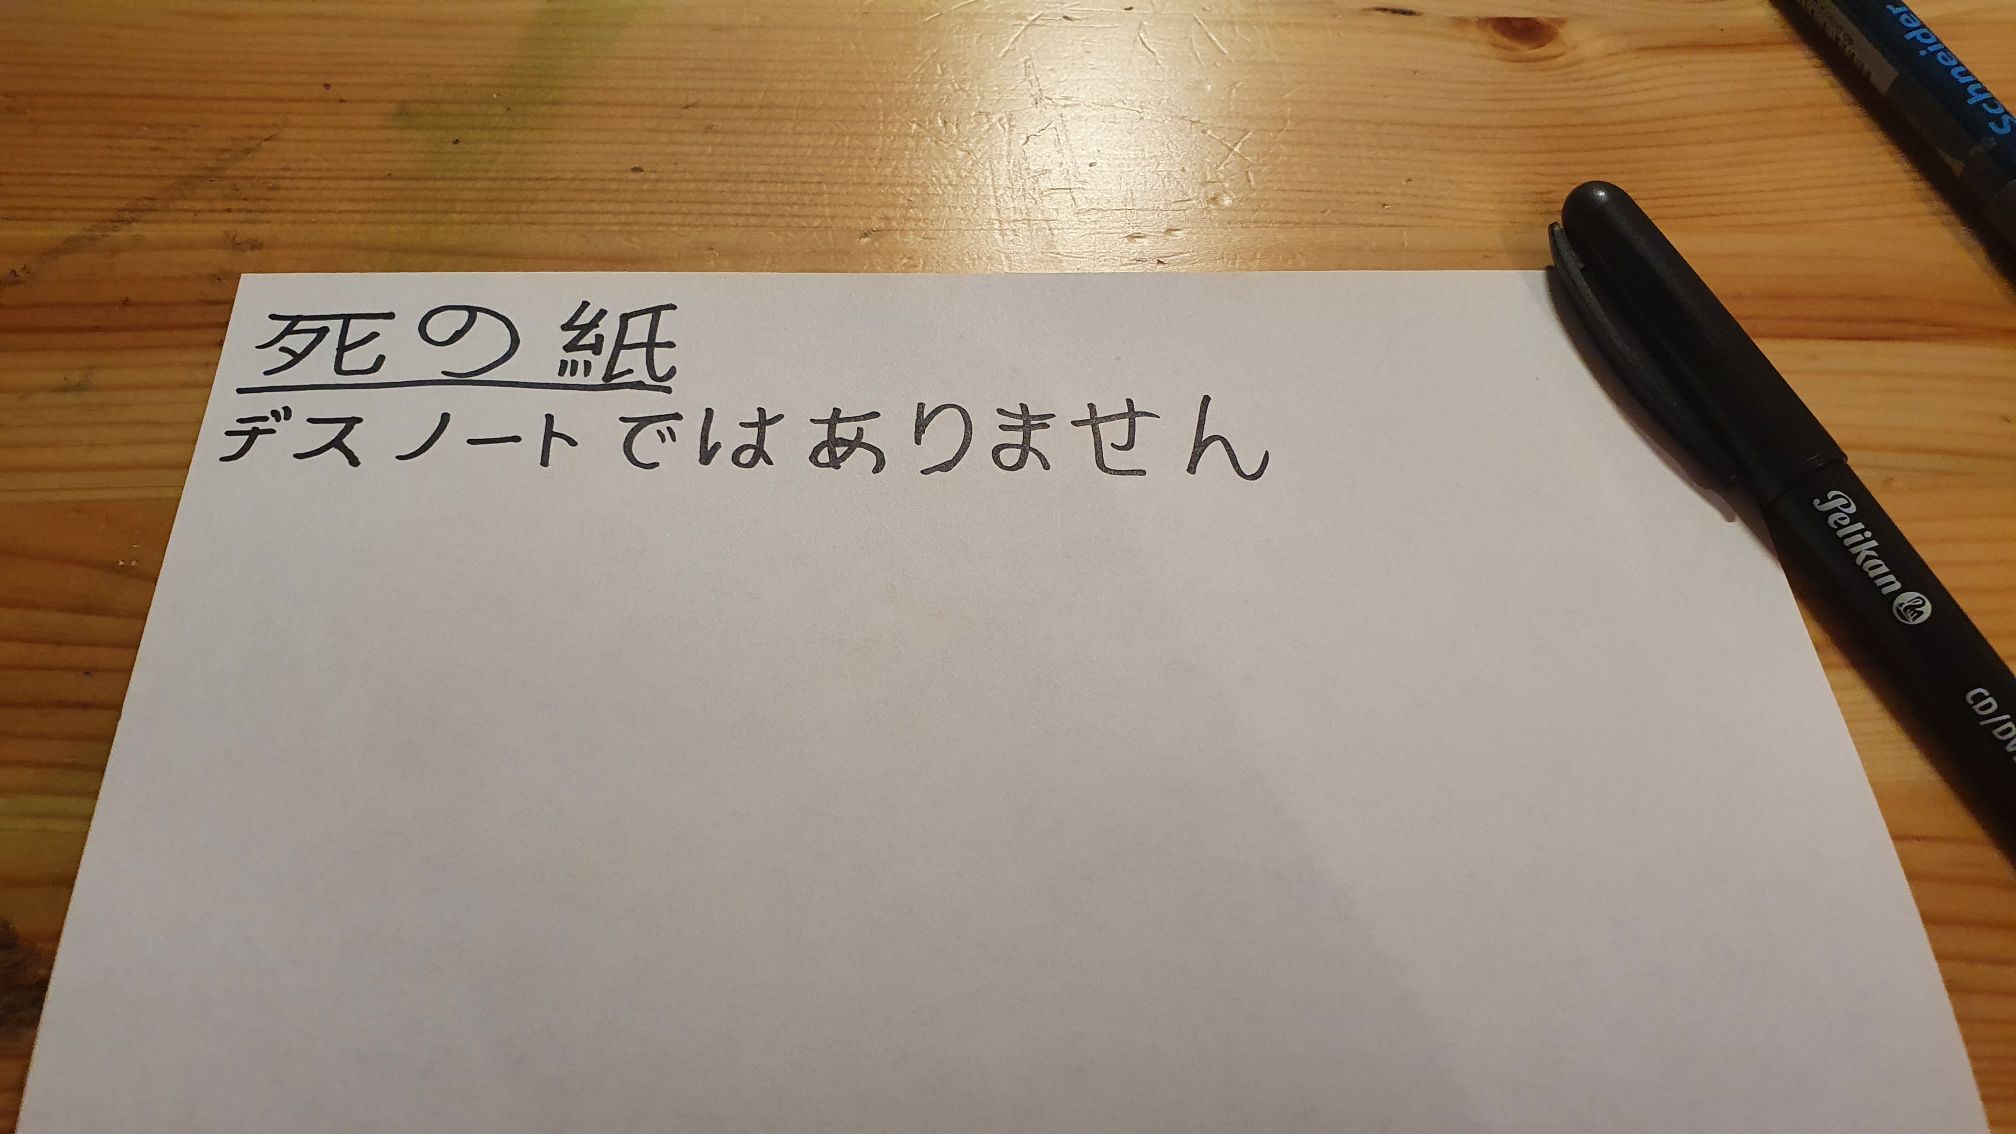 死の紙
デスノートではありません
Schneider
Pelikan
CD/DV